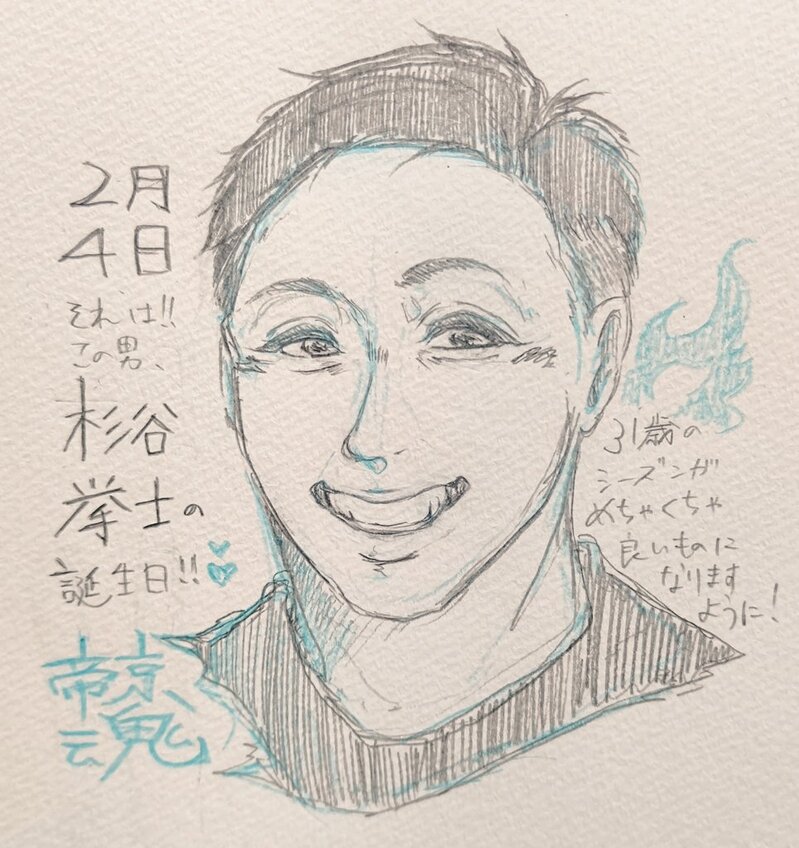 2月
4日
それは!!
この男、
杉谷
拳士の
誕生日!!
帝京
魂
31歳の
シーズンが
めちゃくちゃ
良いものに
なります
ように!